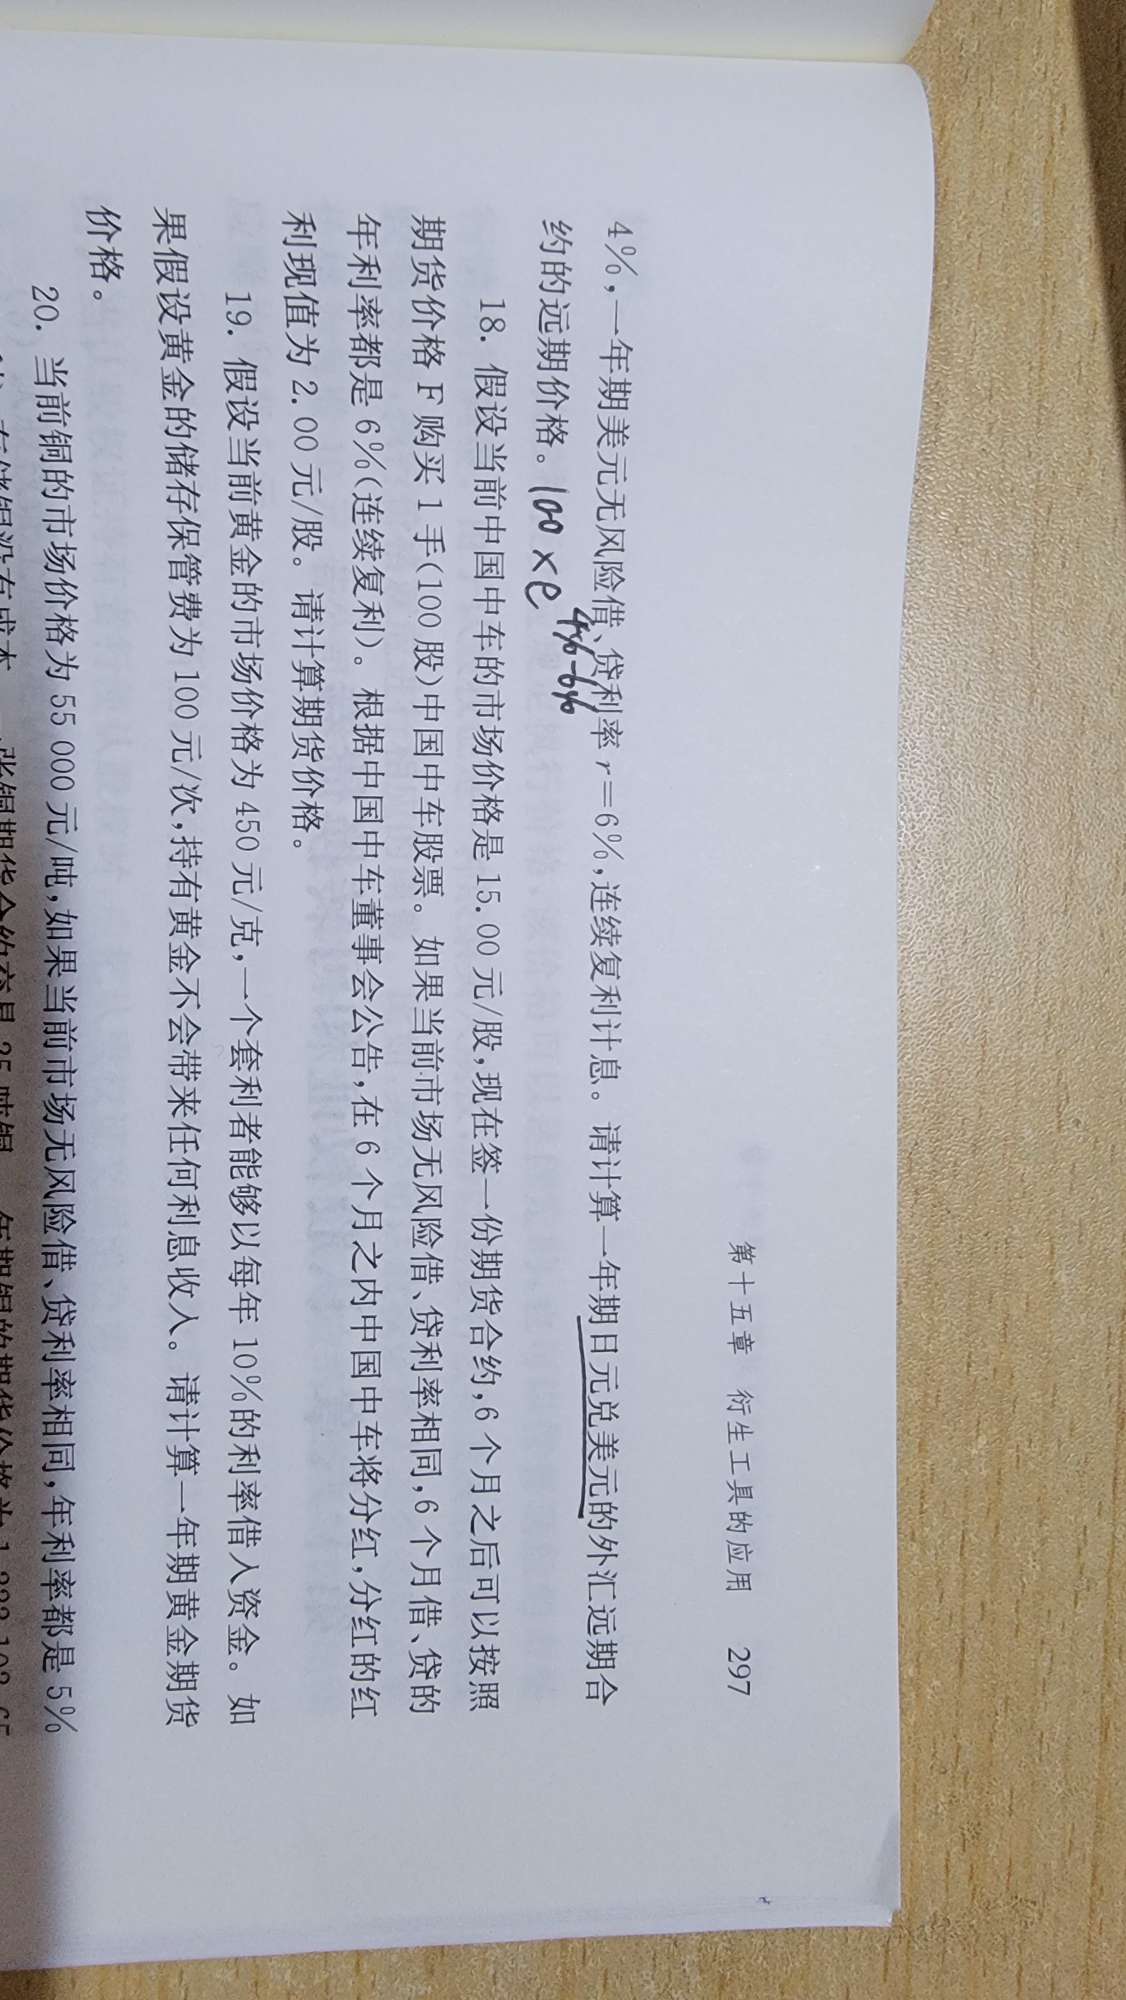 第十五章 衍生工具的应用 297
4%,一年期美元无风险借、贷利率 r=6%,连续复利计息。请计算一年期日元兑美元的外汇远期合
约的远期价格。100×e^4%-6%
18. 假设当前中国中车的市场价格是15.00元/股,现在签一份期货合约,6个月之后可以按照
期货价格F购买1手(100股)中国中车股票。如果当前市场无风险借、贷利率相同,6个月借、贷的
年利率都是6%(连续复利)。根据中国中车董事会公告,在6个月之内中国中车将分红,分红的红
利现值为2.00元/股。请计算期货价格。
19. 假设当前黄金的市场价格为450元/克,一个套利者能够以每年10%的利率借入资金。如
果假设黄金的储存保管费为100元/次,持有黄金不会带来任何利息收入。请计算一年期黄金期货
价格。
20. 当前铜的市场价格为55 000元/吨,如果当前市场无风险借、贷利率相同,年利率都是5%
存储铜没有成本